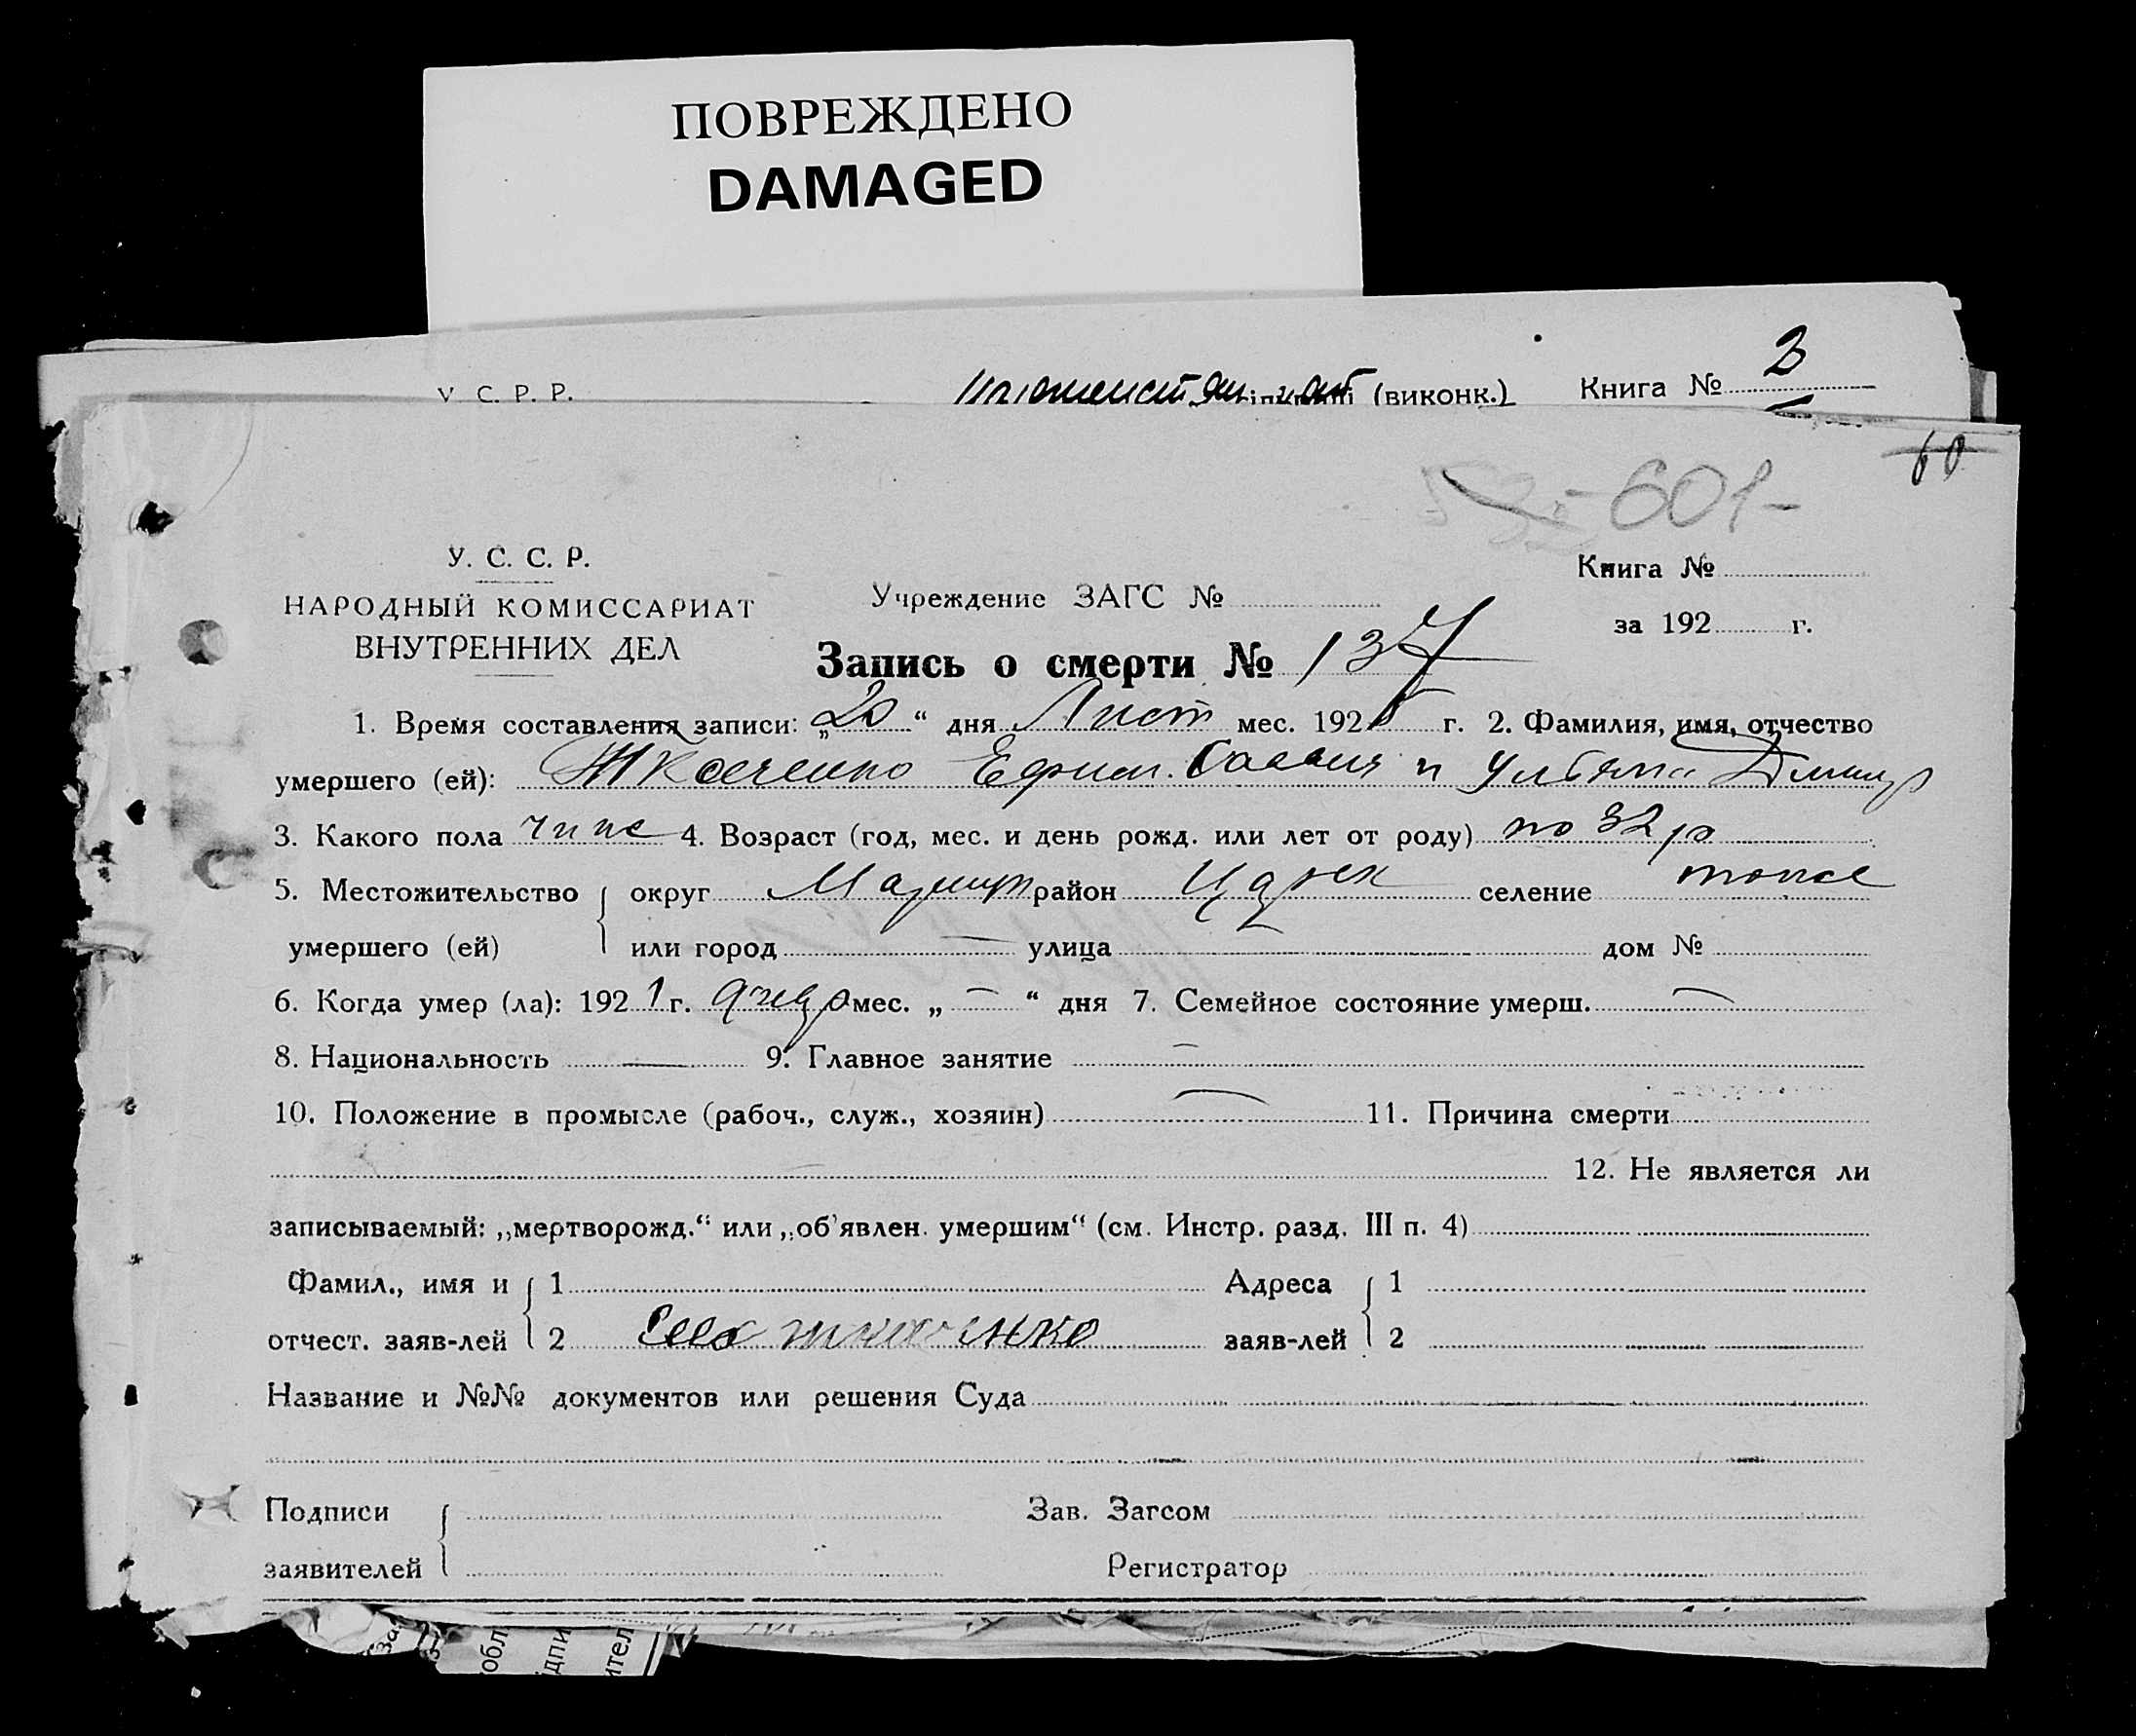 ПОВРЕЖДЕНО
DAMAGED
У. С. Р. Р. (виконк.) Книга № 2
60
601-
У. С. С. Р.
Книга №
НАРОДНЫЙ КОМИССАРИАТ
ВНУТРЕННИХ ДЕЛ
Учреждение ЗАГС №
за 192 г.
Запись о смерти № 137
1. Время составления записи: „20“ дня Лист мес. 192 г. 2. Фамилия, имя, отчество
умершего (ей): Ткаченко Ефим. и Ульяна Дмитр
3. Какого пола 4. Возраст (год, мес. и день рожд. или лет от роду) по 32 р
5. Местожительство округ район селение тоже
умершего (ей) или город — улица — дом №
6. Когда умер (ла): 1921 г. мес. „ — “ дня 7. Семейное состояние умерш. —
8. Национальность — 9. Главное занятие —
10. Положение в промысле (рабоч., служ., хозяин) — 11. Причина смерти
12. Не является ли
записываемый: „мертворожд.“ или „об'явлен. умершим“ (см. Инстр. разд. III п. 4)
Фамил., имя и 1 Адреса 1
отчест. заяв-лей 2 Ткаченко заяв-лей 2
Название и №№ документов или решения Суда
Подписи Зав. Загсом
заявителей Регистратор